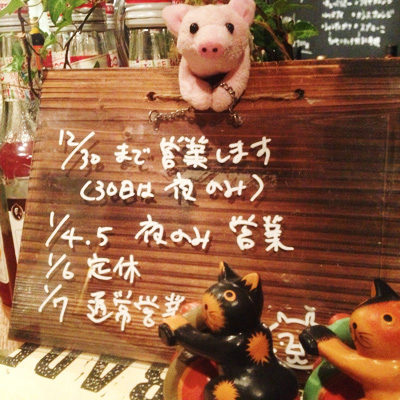 12/30 まで営業します
(30日は 夜のみ)
1/4.5 夜のみ 営業
1/6 定休
1/7 通常営業